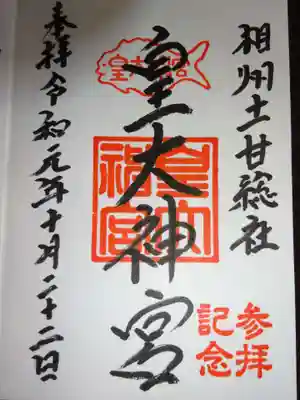 相州土甘総社
皇大神宮
奉拝令和元年十月二十二日
皇大神宮
参拝
記念